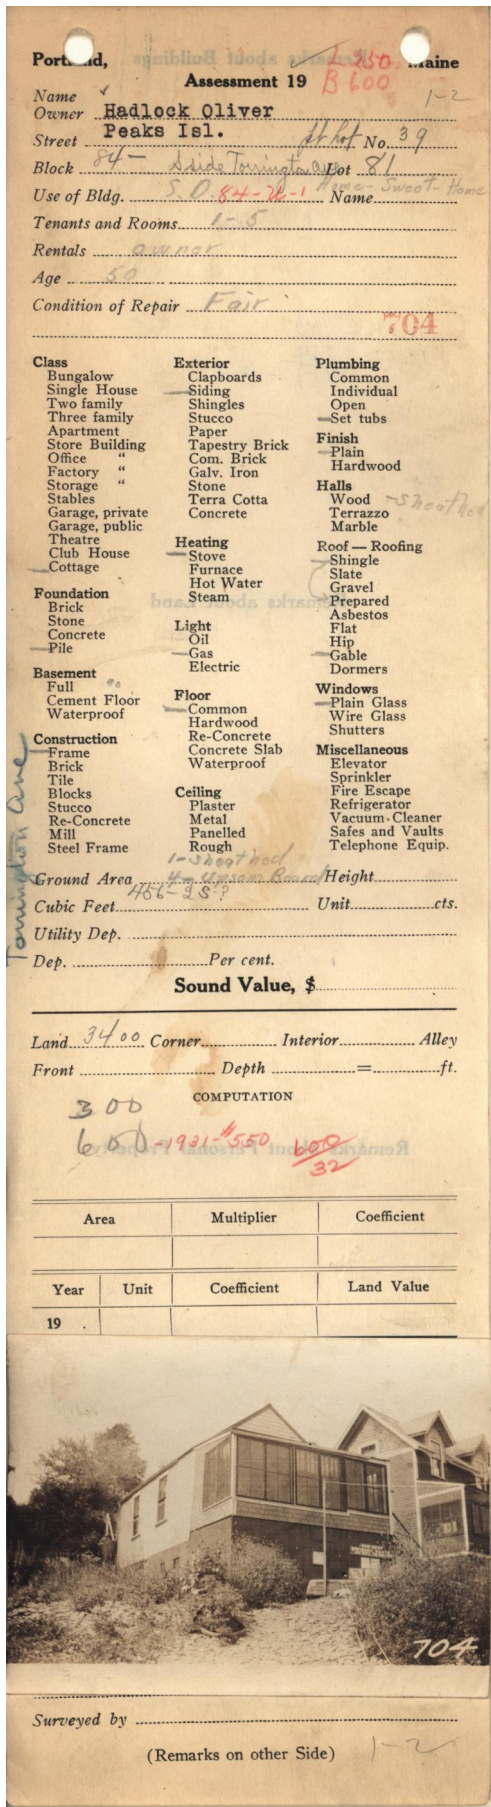 Portland, Maine
L 350
Assessment 19
B 600
1-2
Name
Owner Hadlock Oliver
Peaks Isl.
Street No. 39
Block 84- Sside Torrington Ave Lot 81
Home-Sweet-Home
Use of Bldg. S.D. 84-U-1 Name
Tenants and Rooms 1-5
Rentals owner
Age 50
Condition of Repair Fair
704
Class
Bungalow
Single House
Two family
Three family
Apartment
Store Building
Office "
Factory "
Storage "
Stables
Garage, private
Garage, public
Theatre
Club House
Cottage
Foundation
Brick
Stone
Concrete
Pile
Basement
Full no
Cement Floor
Waterproof
Construction
Frame
Brick
Tile
Blocks
Stucco
Re-Concrete
Mill
Steel Frame
Exterior
Clapboards
Siding
Shingles
Stucco
Paper
Tapestry Brick
Com. Brick
Galv. Iron
Stone
Terra Cotta
Concrete
Heating
Stove
Furnace
Hot Water
Steam
Light
Oil
Gas
Electric
Floor
Common
Hardwood
Re-Concrete
Concrete Slab
Waterproof
Ceiling
Plaster
Metal
Panelled
Rough
Plumbing
Common
Individual
Open
Set tubs
Finish
Plain
Hardwood
Halls
Wood -sheathed
Terrazzo
Marble
Roof — Roofing
Shingle
Slate
Gravel
Prepared
Asbestos
Flat
Hip
Gable
Dormers
Windows
Plain Glass
Wire Glass
Shutters
Miscellaneous
Elevator
Sprinkler
Fire Escape
Refrigerator
Vacuum-Cleaner
Safes and Vaults
Telephone Equip.
Torrington Ave
1-sheathed
4-Upsom Board
Ground Area 456-2S-? Height
Cubic Feet Unit cts.
Utility Dep.
Dep. Per cent.
Sound Value, $
Land 3400 Corner Interior Alley
Front Depth = ft.
COMPUTATION
300
600 -1931-$550 600/32
Remarks about Personal Property
Area Multiplier Coefficient
Year Unit Coefficient Land Value
19 .
704
Surveyed by
(Remarks on other Side) 1-2